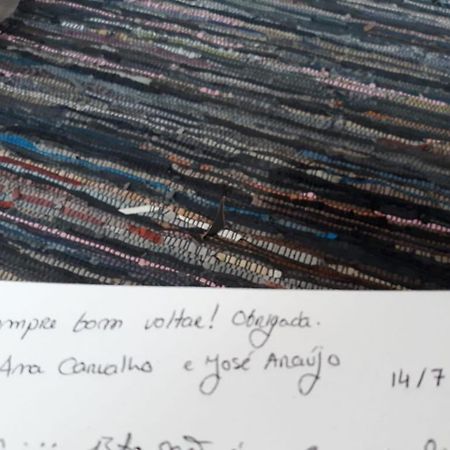 empre bom voltar! Obrigada.
Ana Carvalho e José Araújo
14/7